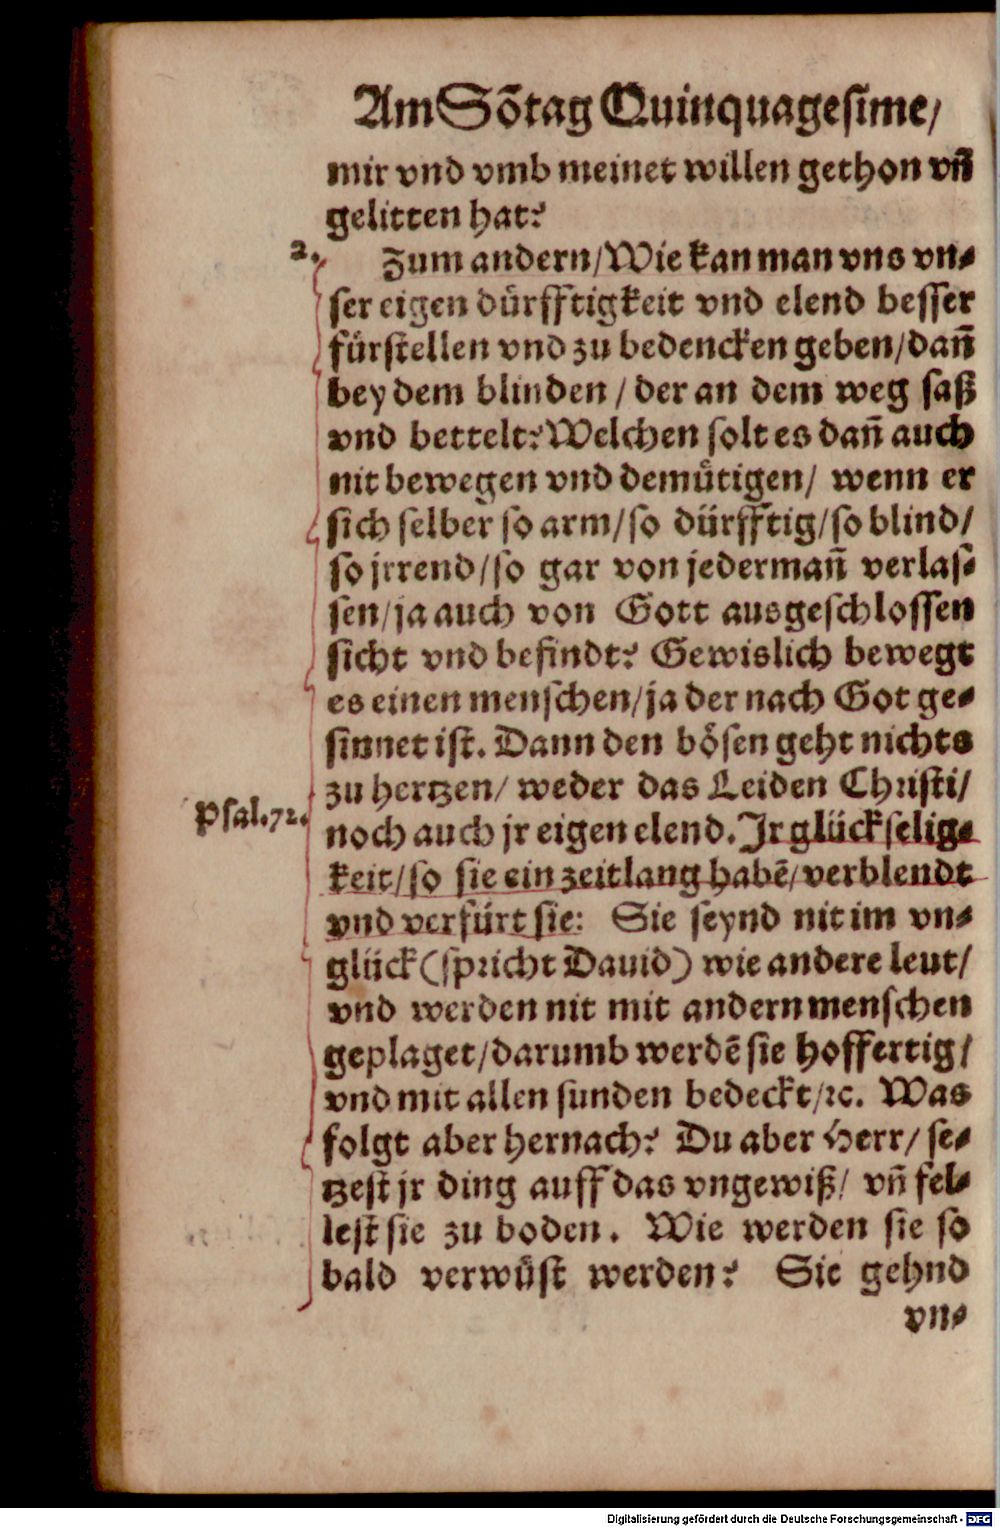 Am Sõtag Quinquagesime/
mir vnd vmb meinet willen gethon vñ
gelitten hat?
2.
Zum andern/Wie kan man vns vn-
ser eigen dürfftigkeit vnd elend besser
fürstellen vnd zu bedencken geben/dañ
bey dem blinden / der an dem weg saß
vnd bettelt? Welchen solt es dañ auch
nit bewegen vnd demütigen/ wenn er
sich selber so arm/so dürfftig/so blind/
so jrrend/so gar von jedermañ verlas-
sen/ja auch von Gott ausgeschlossen
sicht vnd befindt? Gewislich bewegt
es einen menschen/ja der nach Got ge-
sinnet ist. Dann den bösen geht nichts
zu hertzen/ weder das Leiden Christi/
Psal.72.
noch auch jr eigen elend. Jr glückselig-
keit/so sie ein zeitlang habẽ/verblendt
vnd verfürt sie: Sie seynd nit im vn-
glück (spricht Dauid) wie andere leut/
vnd werden nit mit andern menschen
geplaget/darumb werdẽ sie hoffertig/
vnd mit allen sunden bedeckt/ꝛc. Was
folgt aber hernach? Du aber Herr/ se-
tzest jr ding auff das vngewiß/ vñ fel-
lest sie zu boden. Wie werden sie so
bald verwüst werden? Sie gehnd
vn-
Digitalisierung gefördert durch die Deutsche Forschungsgemeinschaft - DFG